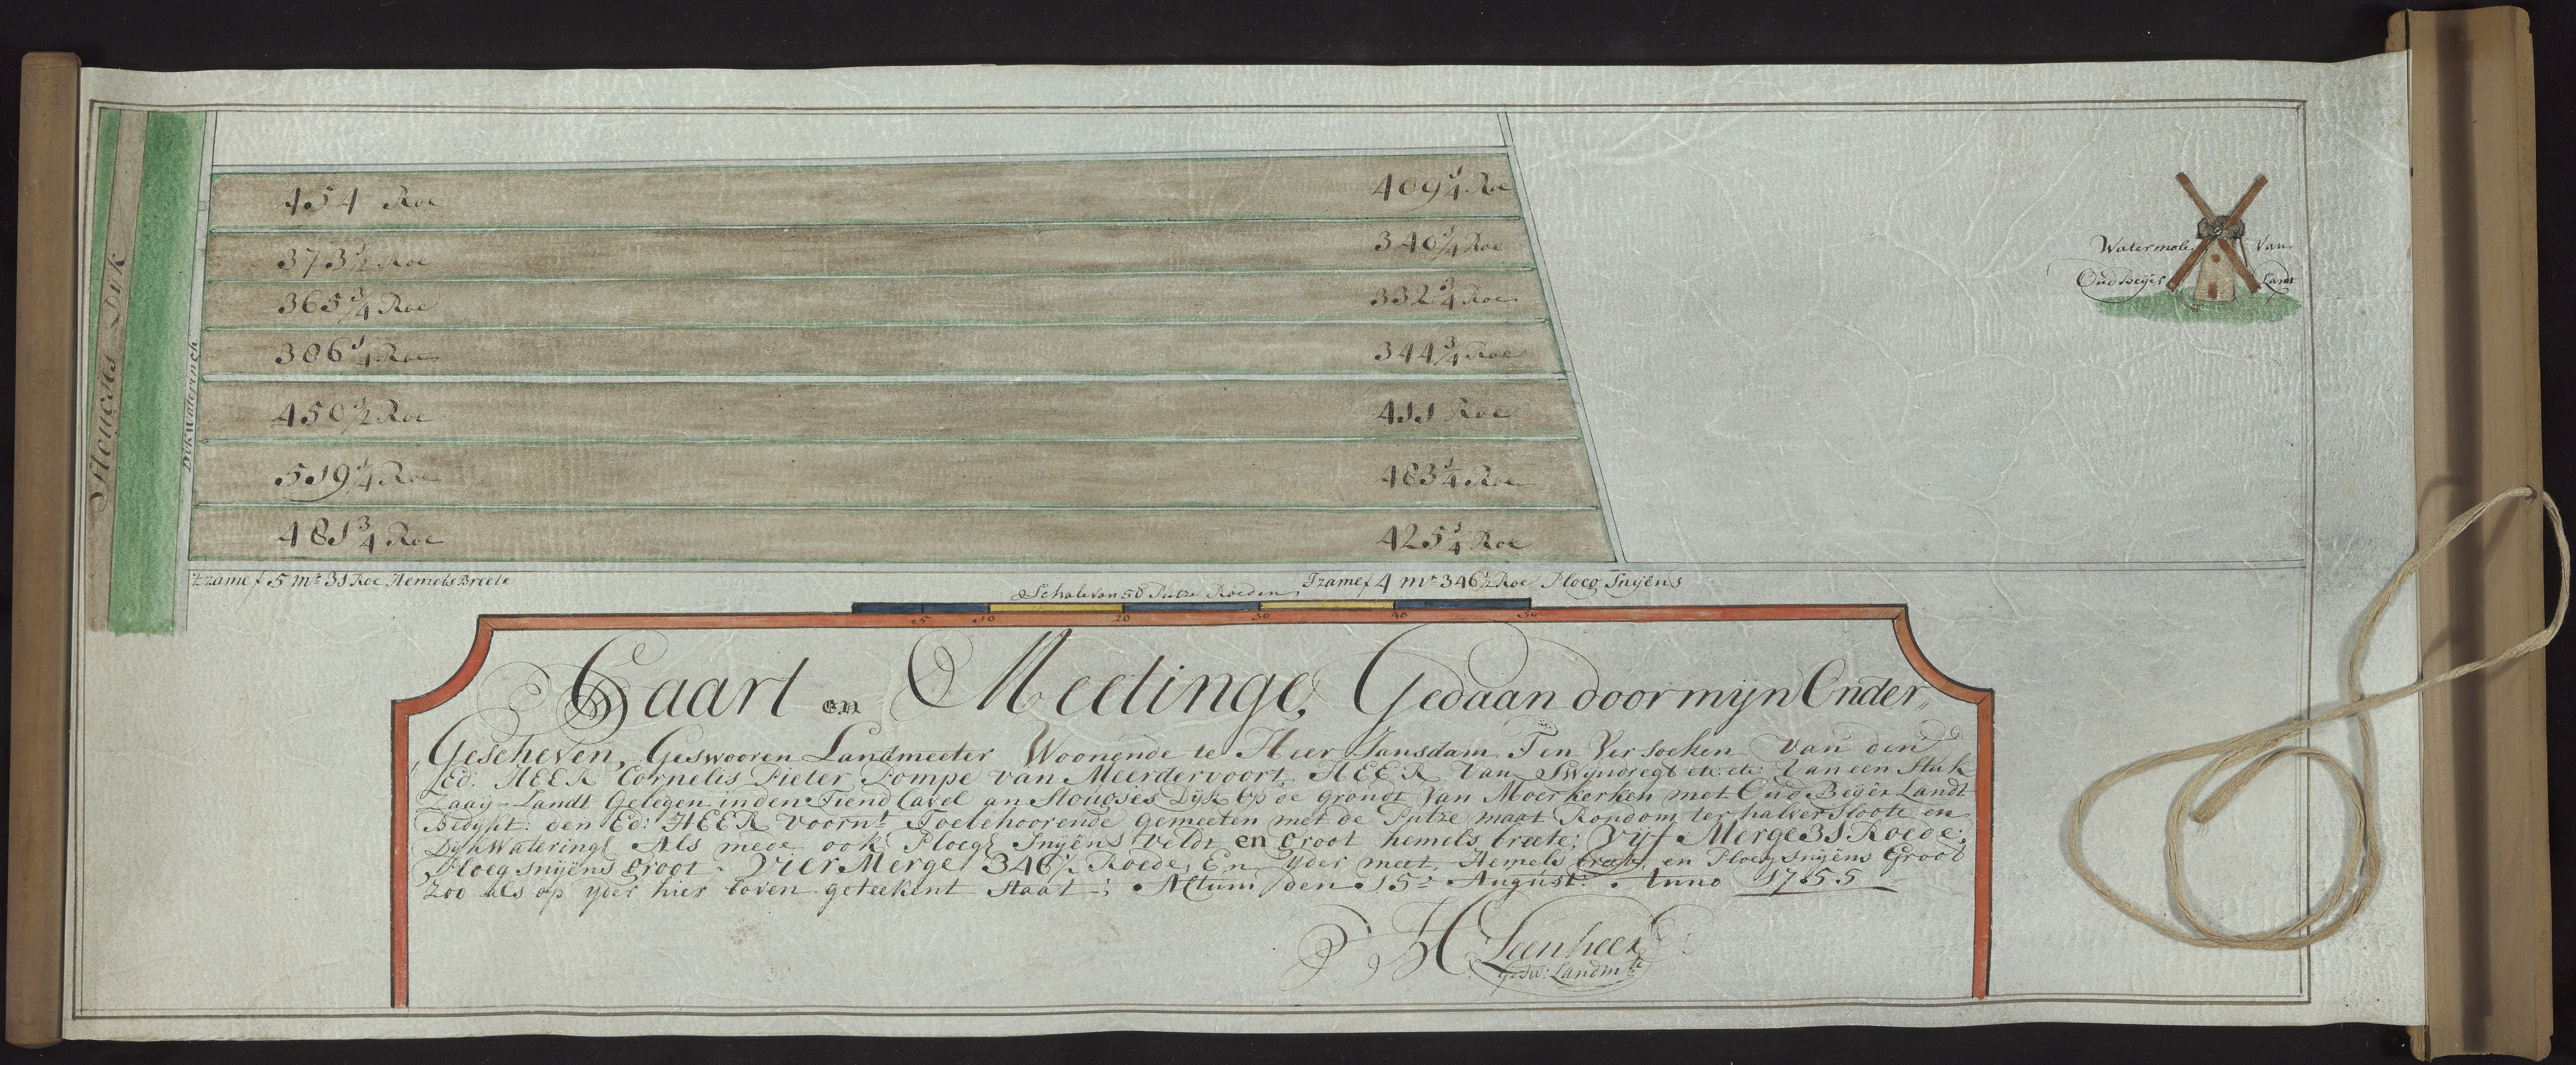 Stougies Dijk
Dijkwaterinch
454 Roe
409 1/4 Roe
373 1/2 Roe
340 1/4 Roe
365 3/4 Roe
332 3/4 Roe
386 1/4 Roe
344 3/4 Roe
450 1/2 Roe
411 Roe
519 1/4 Roe
483 1/4 Roe
481 3/4 Roe
425 1/4 Roe
Watermole Van
Oud Beijer Landt
Tzame 5 mr 31 Roe Hemels Breete
Schale van 50 Putze Roeden
Tzame 4 mr 346 1/2 Roe Ploeg Snyens
5 10 20 30 40 50
Caart en Meetinge, Gedaan door mijn Onder,,
,,Gescheven, Geswooren Landmeeter Woonende te Hier Jansdam, Ten Versoeken van den
Ed: HEER Cornelis Pieter Pompe van Meerdervoort HEER Van Swyndregt etc: etc: Van een Stuk
Zaaij-Landt Gelegen in den Tiend Cavel an Stougies Dijk Op de grondt Van Moerkerken met Oud Beijer Landt
Bedykt: den Ed: HEER voornt Toebehoorende gemeeten met de Putze maat Rondom ter halver Sloote en
Dijk Watering Als mede ook Ploegs Snyens Veldt en groot hemels breete; Vijf Merge 31 Roede;
Ploeg snyens groot, Vier Merge 346 1/2 Roede, En Yder meet Hemels breete, en Ploeg snyens Groot
Zoo als op yder hier boven geteekent Staat; Actum den 15: August: Anno 1755
H Leenheer
Gesw: Landmtr